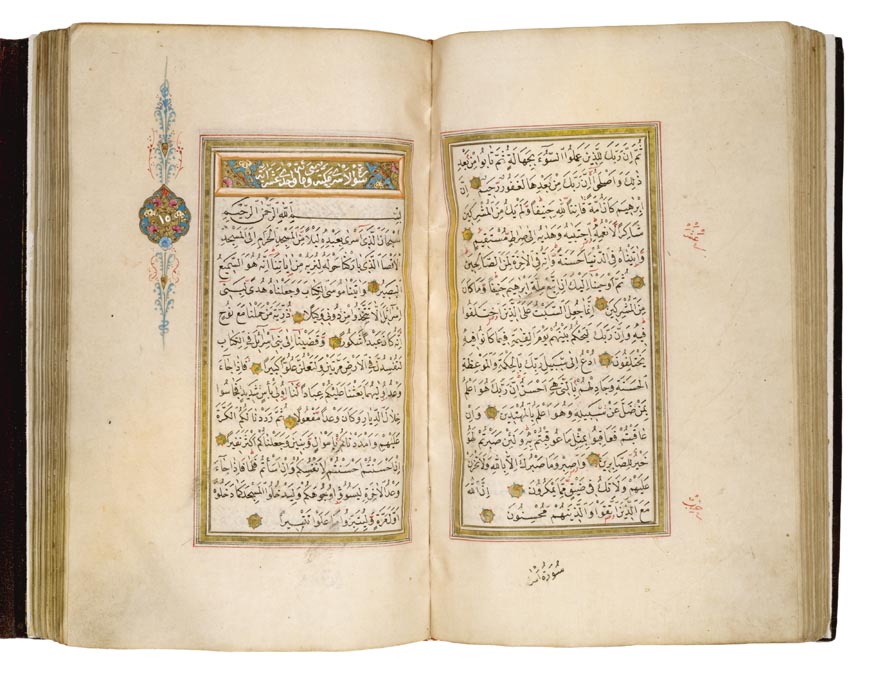 ثُمَّ اِنَّ رَبَّكَ لِلَّذِينَ عَمِلُوا السُّوءَ بِجَهَالَةٍ ثُمَّ تَابُوا مِنْ بَعْدِ
ذٰلِكَ وَاَصْلَحُوا اِنَّ رَبَّكَ مِنْ بَعْدِهَا لَغَفُورٌ رَحِيمٌ اِنَّ
اِبْرٰهِيمَ كَانَ اُمَّةً قَانِتًا لِلّٰهِ حَنِيفًا وَلَمْ يَكُ مِنَ الْمُشْرِكِينَ
شَاكِرًا لِاَنْعُمِهِ اجْتَبٰيهُ وَهَدٰيهُ اِلٰى صِرَاطٍ مُسْتَقِيمٍ
وَاٰتَيْنَاهُ فِي الدُّنْيَا حَسَنَةً وَاِنَّهُ فِي الْاٰخِرَةِ لَمِنَ الصَّالِحِينَ
ثُمَّ اَوْحَيْنَا اِلَيْكَ اَنِ اتَّبِعْ مِلَّةَ اِبْرٰهِيمَ حَنِيفًا وَمَا كَانَ
مِنَ الْمُشْرِكِينَ اِنَّمَا جُعِلَ السَّبْتُ عَلَى الَّذِينَ اخْتَلَفُوا
فِيهِ وَاِنَّ رَبَّكَ لَيَحْكُمُ بَيْنَهُمْ يَوْمَ الْقِيٰمَةِ فِيمَا كَانُوا فِيهِ
يَخْتَلِفُونَ اُدْعُ اِلٰى سَبِيلِ رَبِّكَ بِالْحِكْمَةِ وَالْمَوْعِظَةِ
الْحَسَنَةِ وَجَادِلْهُمْ بِالَّتِي هِيَ اَحْسَنُ اِنَّ رَبَّكَ هُوَ اَعْلَمُ
بِمَنْ ضَلَّ عَنْ سَبِيلِهِ وَهُوَ اَعْلَمُ بِالْمُهْتَدِينَ وَاِنْ
عَاقَبْتُمْ فَعَاقِبُوا بِمِثْلِ مَا عُوقِبْتُمْ بِهِ وَلَئِنْ صَبَرْتُمْ لَهُوَ
خَيْرٌ لِلصَّابِرِينَ وَاصْبِرْ وَمَا صَبْرُكَ اِلَّا بِاللّٰهِ وَلَا تَحْزَنْ
عَلَيْهِمْ وَلَا تَكُ فِي ضَيْقٍ مِمَّا يَمْكُرُونَ اِنَّ اللّٰهَ
مَعَ الَّذِينَ اتَّقَوْا وَالَّذِينَ هُمْ مُحْسِنُونَ
سورة اسرا
١٥
بِسْمِ اللّٰهِ الرَّحْمٰنِ الرَّحِيمِ
سُبْحَانَ الَّذِي اَسْرٰى بِعَبْدِهِ لَيْلًا مِنَ الْمَسْجِدِ الْحَرَامِ اِلَى الْمَسْجِدِ
الْاَقْصَا الَّذِي بَارَكْنَا حَوْلَهُ لِنُرِيَهُ مِنْ اٰيَاتِنَا اِنَّهُ هُوَ السَّمِيعُ
الْبَصِيرُ وَاٰتَيْنَا مُوسَى الْكِتَابَ وَجَعَلْنَاهُ هُدًى لِبَنِي
اِسْرَائِلَ اَلَّا تَتَّخِذُوا مِنْ دُونِي وَكِيلًا ذُرِّيَّةَ مَنْ حَمَلْنَا مَعَ نُوحٍ
اِنَّهُ كَانَ عَبْدًا شَكُورًا وَقَضَيْنَا اِلٰى بَنِي اِسْرَائِلَ فِي الْكِتَابِ
لَتُفْسِدُنَّ فِي الْاَرْضِ مَرَّتَيْنِ وَلَتَعْلُنَّ عُلُوًّا كَبِيرًا فَاِذَا جَاءَ
وَعْدُ اُولٰيهُمَا بَعَثْنَا عَلَيْكُمْ عِبَادًا لَنَا اُولِي بَأْسٍ شَدِيدٍ فَجَاسُوا
خِلَالَ الدِّيَارِ وَكَانَ وَعْدًا مَفْعُولًا ثُمَّ رَدَدْنَا لَكُمُ الْكَرَّةَ
عَلَيْهِمْ وَاَمْدَدْنَاكُمْ بِاَمْوَالٍ وَبَنِينَ وَجَعَلْنَاكُمْ اَكْثَرَ نَفِيرًا
اِنْ اَحْسَنْتُمْ اَحْسَنْتُمْ لِاَنْفُسِكُمْ وَاِنْ اَسَأْتُمْ فَلَهَا فَاِذَا جَاءَ
وَعْدُ الْاٰخِرَةِ لِيَسُوؤُا وُجُوهَكُمْ وَلِيَدْخُلُوا الْمَسْجِدَ كَمَا دَخَلُوهُ
اَوَّلَ مَرَّةٍ وَلِيُتَبِّرُوا مَا عَلَوْا تَتْبِيرًا